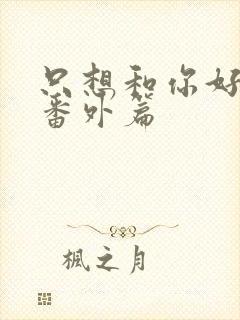 只想和你好
番外篇
楓之月